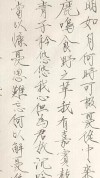 明如月何時可掇憂從中来
鹿鳴食野之苹我有嘉賓鼓
青子衿悠悠我心但為君故沉吟
當以慷憂思難忘何以解憂